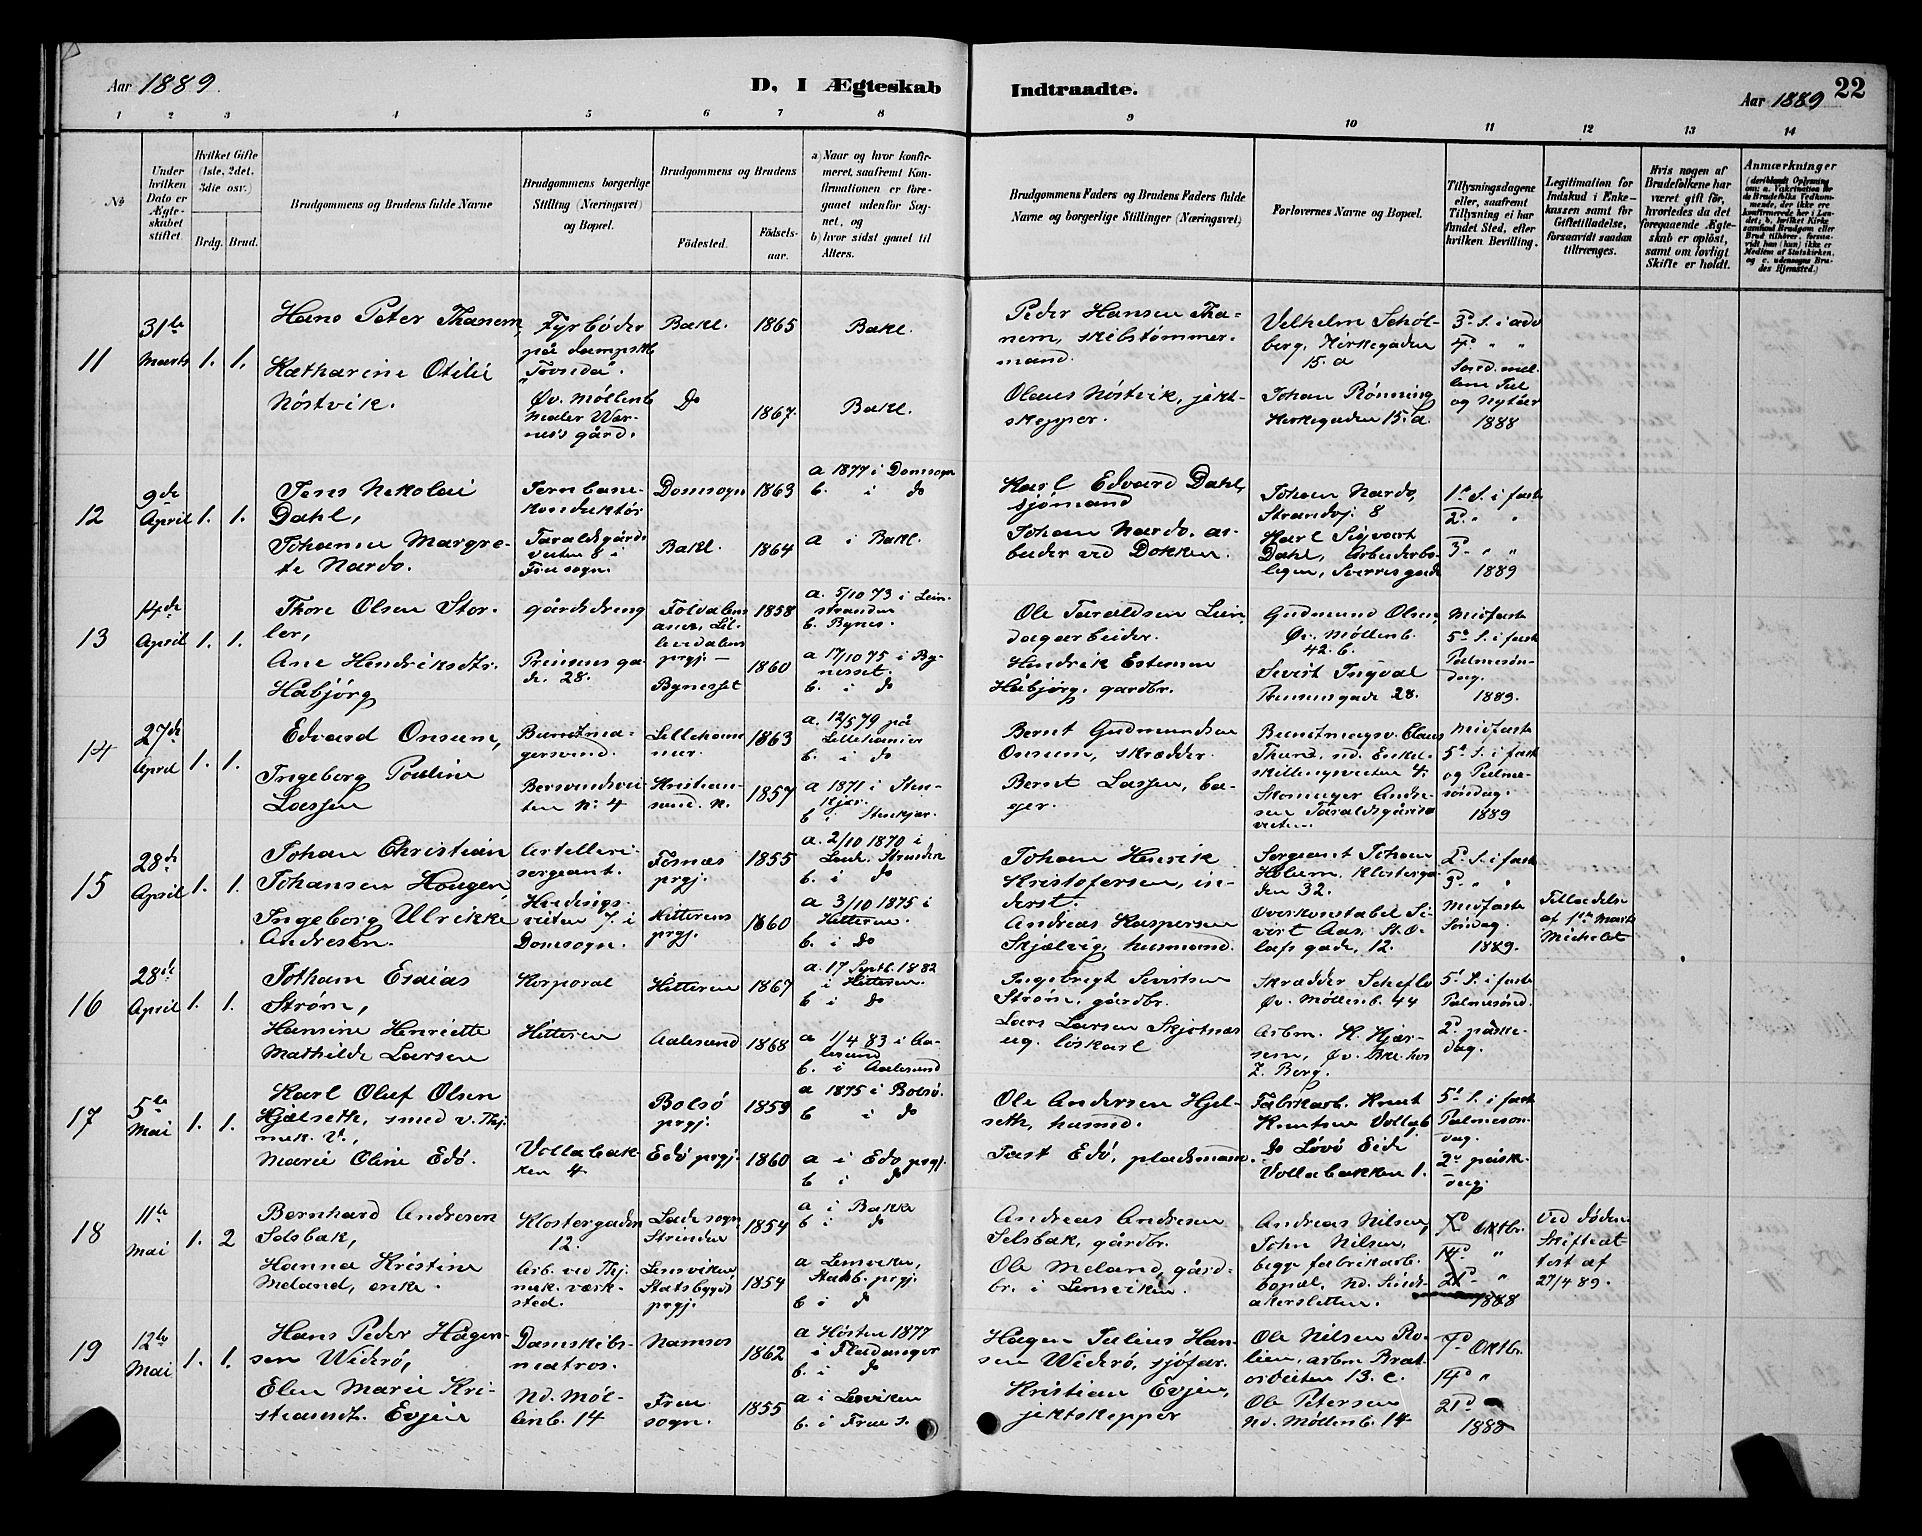 Aar 1889.
D. I Ægteskab
Indtraadte.
Aar 1889
22
1 2 3 4 5 6 7 8 9 10 11 12 13 14
No
Under
hvilken
Dato er
Ægte-
skabet
stiftet.
Hvilket Gifte
(1ste, 2det,
3die osv.)
Brdg. Brud.
Brudgommens og Brudens fulde Navne
Brudgommens borgerlige
Stilling (Næringsvei)
og Bopæl.
Brudgommens og Brudens
Fødested.
Fødsels-
aar.
a) Naar og hvor konfir-
meret, saafremt Kon-
firmationen er fore-
gaaet udenfor Sog-
net, og
b) hvor sidst gaaet til
Alters.
Brudgommens Faders og Brudens Faders fulde
Navne og borgerlige Stillinger (Næringsvei)
Forlovernes Navne og Bopæl.
Tillysningsdagene
eller, saafremt
Tillysning ei har
fundet Sted, efter
hvilken Bevilling.
Legitimation for
Indskud i Enke-
kassen samt for
Giftetilladelse,
forsaavidt saadan
tiltrænges.
Hvis nogen af
Brudefolkene har
været gift før,
hvorledes da det
foregaaende Ægte-
skab er opløst,
samt om lovligt
Skifte er holdt.
Anmærkninger
11
31te
Marts
1. 1.
Hans Peter Thanem,
Katharine Otilie
Nöstvik.
Fyrbøder
på dampsk.
Øv. Möllenb
Maler War-
nes's gård.
Bakl.
Do
1865
1867.
Bakl.
Bakl.
Peder Hansen Tha-
nem, skibstømmer-
mand.
Olaus Nöstvik, jekt-
skepper.
Velhelm Schöl-
berg, Kirkegaden
15. a
Johan Rönning
Kirkegaden 15. a.
3d. S. i adv
4d. " "
Sönd. mel-
lem Jul
og Nytår
1888
12
9de
April
1. 1.
Jens Nikolai
Dahl,
Johanne Margre-
te Nardo.
Jernbane-
konduktör
Taraldsgårds
veiten 8 i
Fruesogn.
Domsogn
Bakl.
1863
1864
a 1877 i Domsogn
b. i do
a i Bakl.
Karl Edvard Dahl,
sjömand
Johan Nardo, ar-
beider ved Dokken.
Johan Nardo,
Strandvj. 8
Karl Sigvart
Dahl, Arbeiderbo-
ligen, Sverresgade
1ste S. i faste
2d. " "
3d. " "
1889
13
14de
April
1. 1.
Thore Olsen Stor-
ler,
Ane Hendriksdtr.
Håbjörg
gårdsdreng
Prinsensga-
de. 28.
Foldalens
annex, Lil-
leelvdalens
prgj. —
Bynesset
1858
1860
a. 5/10 73 i Lein-
stranden
b. Bynes.
a 17/10 75 i By-
nesset.
b. i do
Ole Taraldsen Lein
dagarbeider.
Hendrik Estensen
Håbjörg, gardbr.
Gudmund Olsen,
Øv. Möllenb.
42. b.
Sivert Ingval
Prinsensgade 28.
Midfaste
5te S. i faste
Palmesön-
dag.
1889.
14
27de
April
1. 1.
Edvard Onsum,
Ingeborg Pouline
Lassen
Buntma-
gersvend.
Bersvendsvei-
ten N: 4
Lilleham-
mer.
Kristian-
sund. N.
1863
1857
a. 12/5 79 på
Lillehamer
b. i do
a 1871 i Sten-
kjær.
b i Stenkjær.
Bernt Gudmundsen
Onsum, skrædder.
Bernt Lassen, ba-
ger.
Buntmagsv. Claus
Thund, nd. Enkel-
skillingsveiten 4.
Skomager Andre-
sen Taraldsgårds-
veiten
Midfaste
5te S. i faste
og Palme-
söndag.
1889
15
28de
April
1. 1.
Johan Christian
Johansen Haugen,
Ingeborg Ulrikke
Andresen.
Artilleri-
sergeant.
Hvedings-
veiten 7. i
Domsogn.
Fosnæs
prgj.
Hitterens
prgj.
1855
1860
a. 2/10 1870 i
Lade, Strinden
b. i do
a 3/10 1875 i
Hitteren.
b. i Do
Johan Henrik
Kristofersen, in-
derst.
Andreas Kaspersen
Skjælvig, husmand.
Sergeant Johan
Holum, Klosterga-
den 32.
Overkonstabel Si-
vert Aas. St. O-
lafs gade, 12.
2d. S. i faste
3d. " "
Midfaste
Söndag.
1889.
Tilladelse
af 1ste Marts
Michelet
16
28de
April
1. 1.
Johan Esaias
Ström,
Hansine Henriette
Mathilde Larsen
Korporal
Hitteren
Hitteren
Aalesund
1867
1868
a. 17 Septb. 1882
i Hitteren.
b i do
a 1/4 83 i Aa-
lesund
b. i Aalesund
Ingebrigt Sivertsen
Ström, gårdbr.
Lars Larsen Skjotnæs
ug. löskarl
Skrædder Scheflo
Øv. Möllenb. 44
Arbm. K. Kjær-
sem, Øv. Bkl. hos
Z. Berg.
5te S. i faste
Palmesönd.
2d. påske-
dag.
17
5te
Mai
1. 1.
Karl Oluf Olsen
Hjelseth, smed v. Thj.
mek. V.,
Marie Oline Edö.
Vollabak-
ken 4.
Bolsö
prgj.
Edö prgj.
1859
1860
a 1875 i Bolsö.
b i do
a i Edö prgj.
b i do
Ole Andersen Hjel-
seth, husmd.
Jast Edö, pladsmand.
Fabrikarb. Knut
Knutsen Vollab
Do Lövö Eide
Vollabakken 1.
5te S. i faste
Palmesön-
dag.
2d. påsk-
dag.
18
11te
Mai
1. 2
Bernhard Andresen
Selsbak,
Hanna Kristine
Meland, enke.
Klostergaden
12.
Arb. ved Thj.
mek. værk-
sted.
Ladesogn
Strinden
Lensviken
Stadsbygds
prgj.
1854
1854
a i Bakke
b i do
a Lensviken,
Stadsb. prgj.
b i do
Andreas Andresen
Selsbak, gårdbr.
Ole Meland, gård-
br. i Lensviken.
Andreas Nilsen,
John Nilsen,
begge fabrikarb.
bopæl, Nd. Sönd-
akersletten.
7d Oktbr
14d "
21d "
1888
Ved döden
skifteat
test af
27/4 89.
19
12te
Mai
1. 1.
Hans Peder Hågen-
sen Widerö,
Elen Marie Kri-
stiansdt. Evjen
Damskibs-
matros.
Nd. Möl-
lenb. 14
Namsos
Frue
sogn.
1862
1855
a Hösten 1877
i Fladanger
b. i do
a i Lexviken
b. i Frue s.
Hågen Julius Han-
sen Widerö, sjöfar.
Kristian Evjen,
jektskepper
Ole Nilsen Ro-
lien, arbm Brat-
örveiten 13. c.
Ole Petersen
Nd. Möllenb. 14
7d. Oktbr.
14d "
21d "
1888